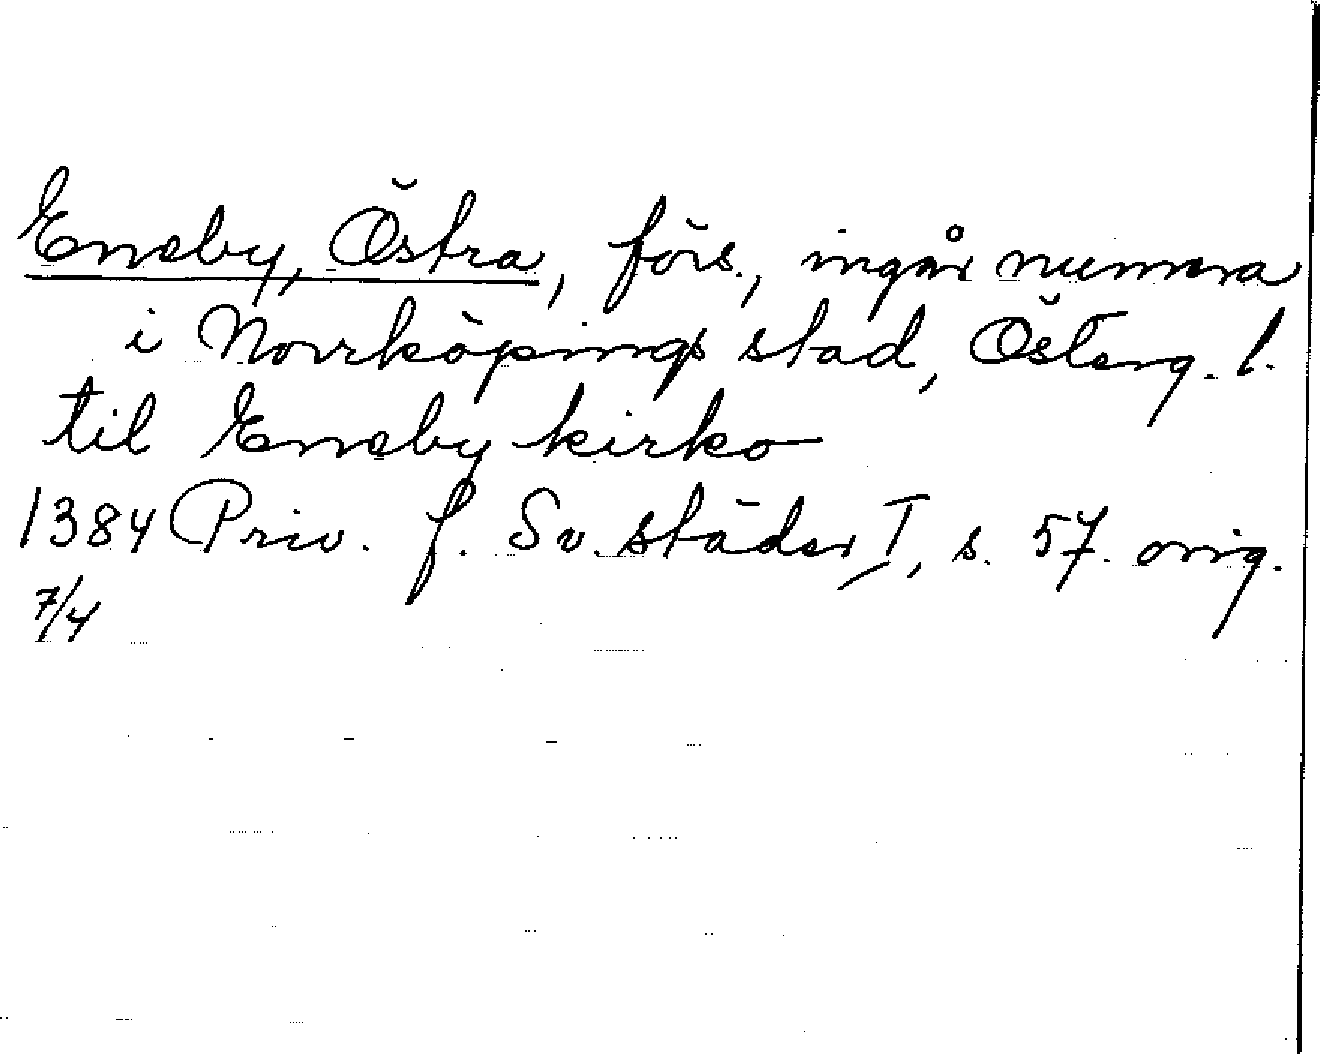 Eneby, Östra, förs., ingår numera
i Norrköpings stad, Österg. l.
til Eneby kirko
1384 Priv. f. Sv. städer I, s. 57. orig.
7/4